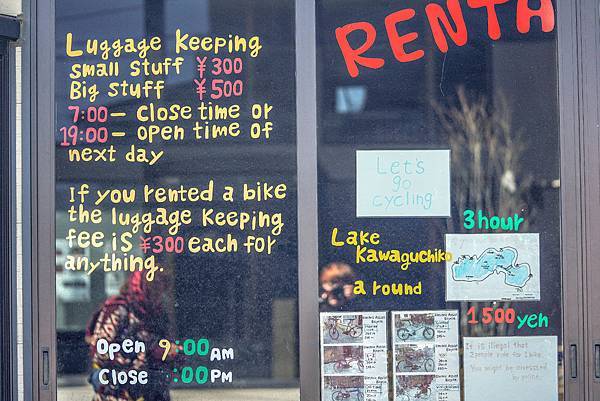 Luggage Keeping
small stuff ¥300
Big stuff ¥500
7:00 — close time or
19:00 — open time of
next day
If you rented a bike
the luggage keeping
fee is ¥300 each for
anything.
Open 9:00 AM
Close :00 PM
RENTA
Let's
go
cycling
3hour
Lake
Kawaguchiko
around
1500yen
It is illegal that
2people ride for 1bike.
You might be arrested
by police.